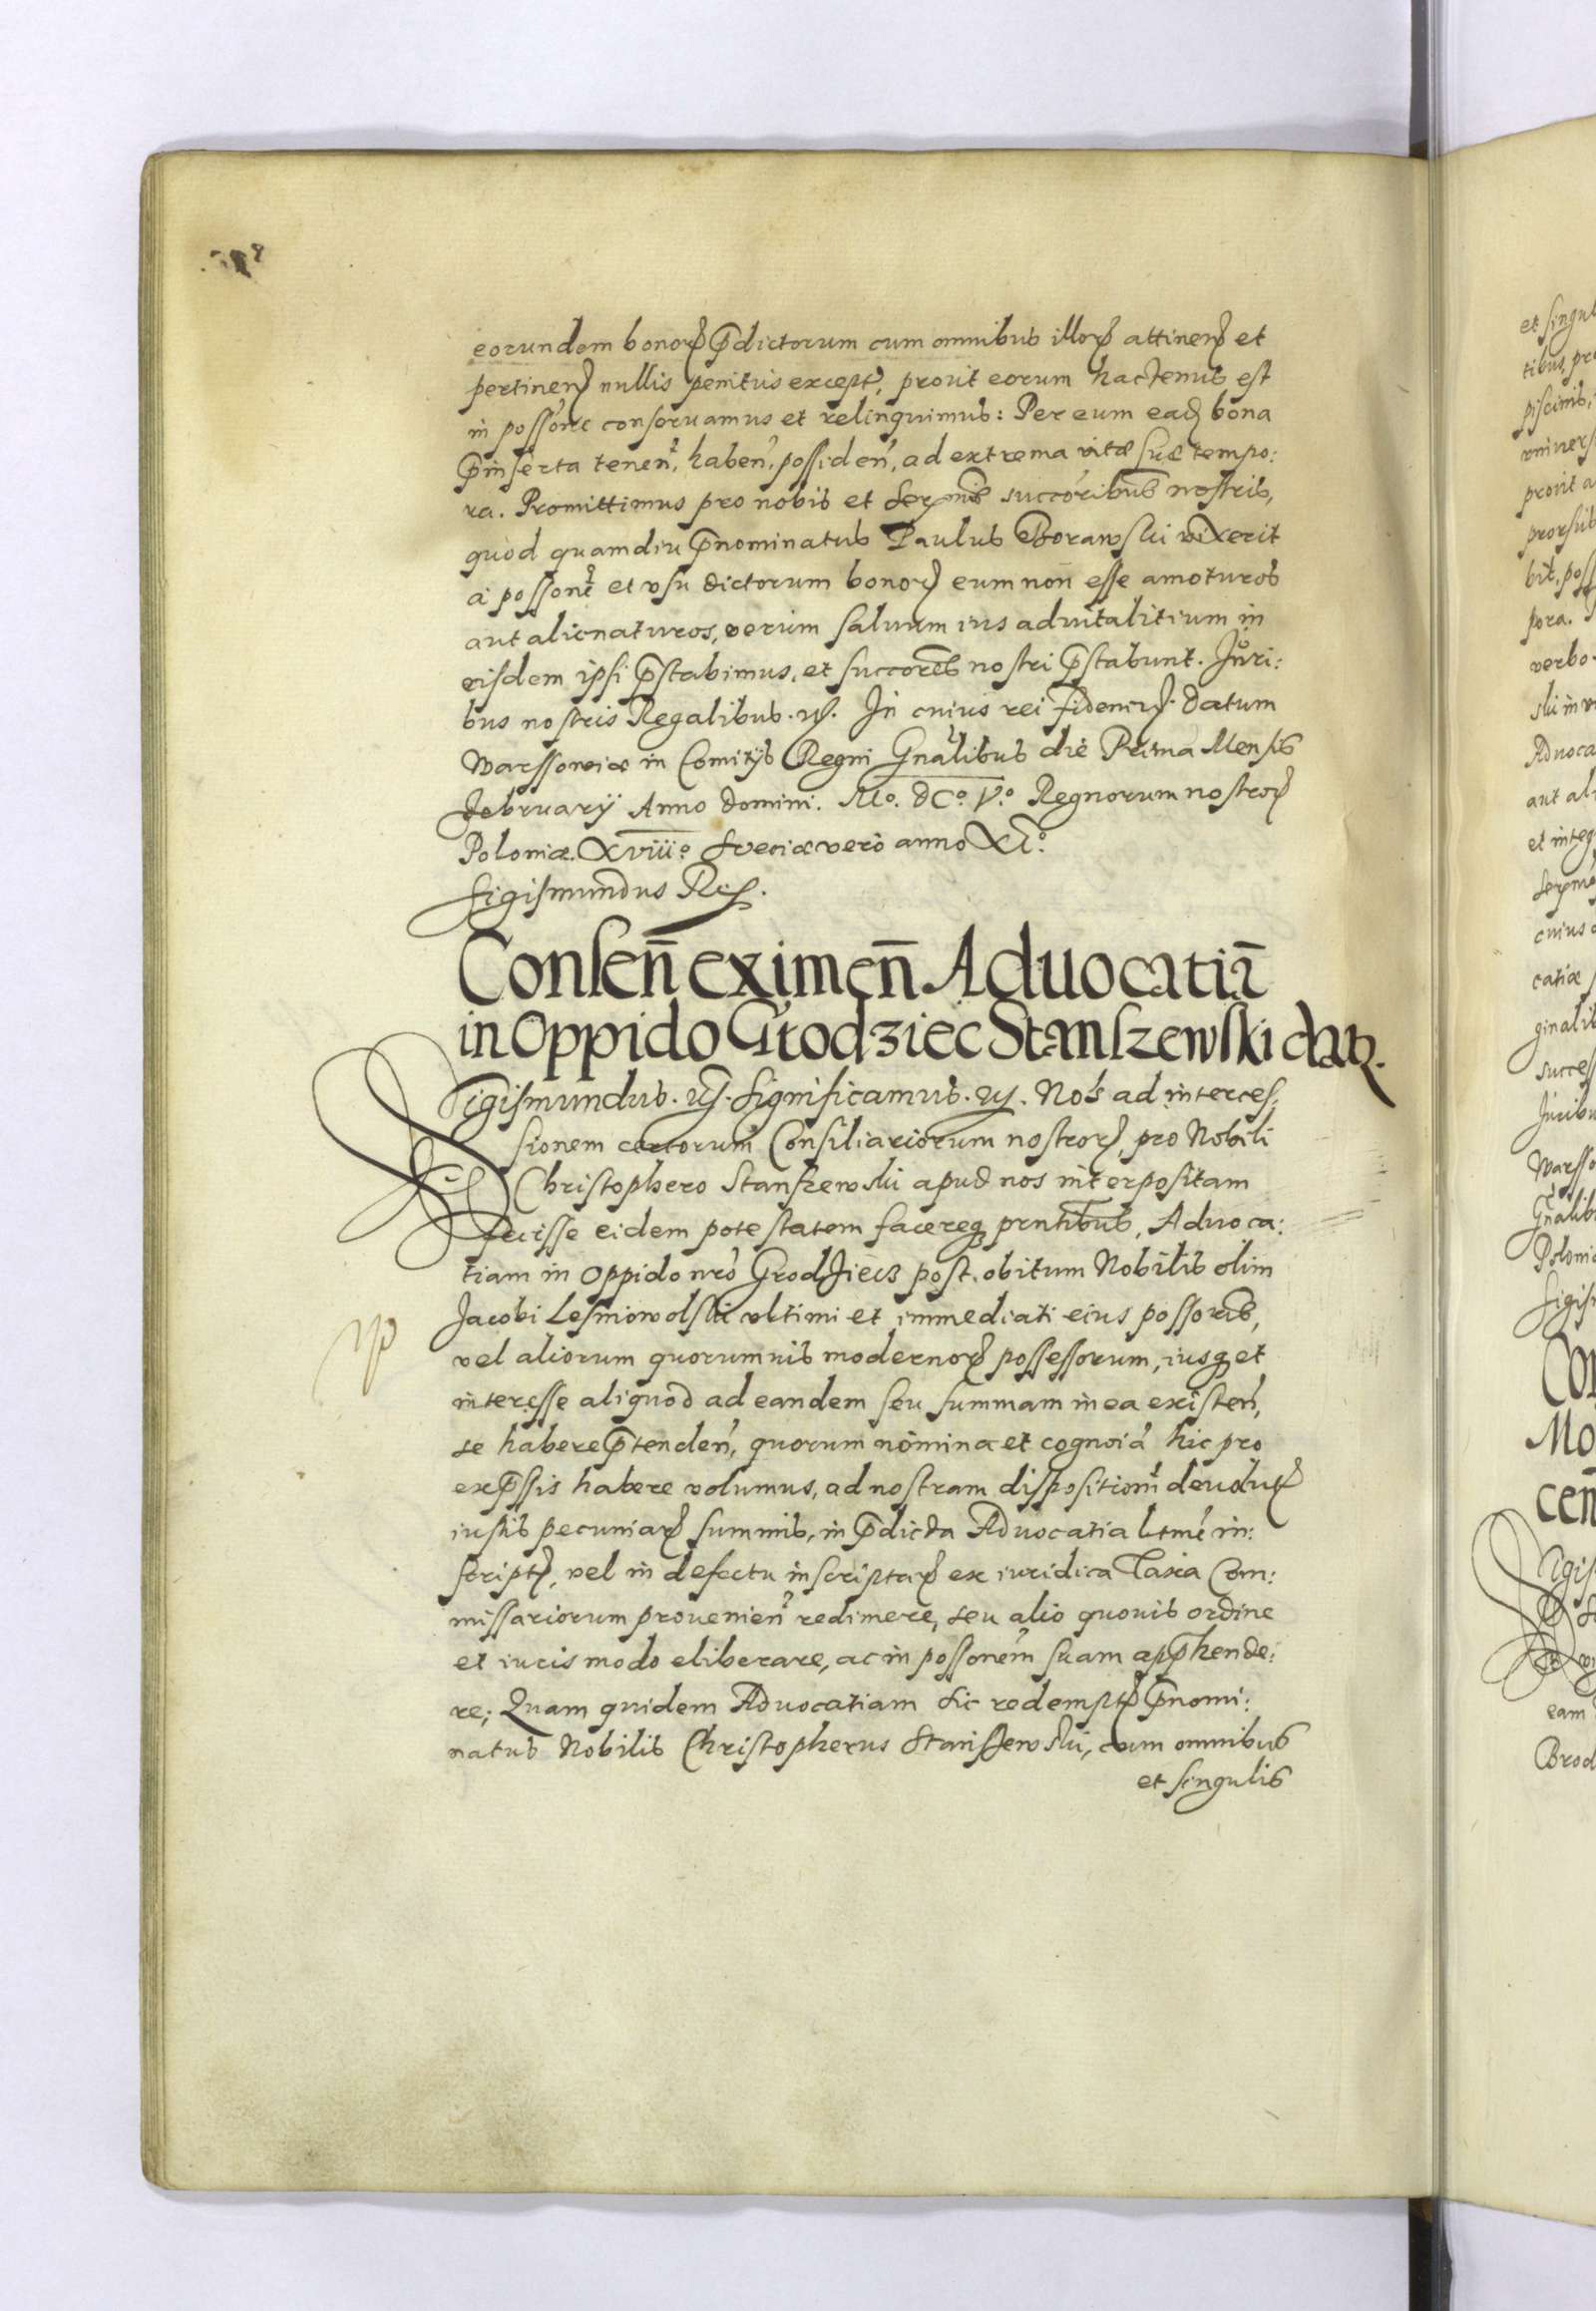 eorundem bonorꝝ p̄dictorum cum omnibus illorꝝ attinenꝝ et
pertinenꝝ nullis penitus except, prout eorum hactenus est
in posson̄e conseruamus et relinquimus: Per eum eadꝫ bona
p̄inserta tenen̄, haben̄, possiden̄, ad extrema vitæ suæ tempo:
ra. Promittimus pro nobis et Serꝫmis succōribus nostris,
quod quamdiu p̄nominatus Paulus Borawski vixerit
à posson̄e et vsu dictorum bonorꝝ eum non esse amoturos
aut alienaturos, verùm saluum ius aduitalitium in
eisdem ipsi p̄stabimus, et succores nostri p̄stabunt. Juri:
bus nostris Regalibus. In cuius rei fidem. Datum
Warssouiæ in Comitÿs Regni Gn̄alibus die Prima Mensis
Februarÿ Anno Domini. Mo. DCo. Vo. Regnorum nostrorꝝ
Poloniæ. XVIIIo. Sueciæ verò anno XIo.
Sigismundus Rex.
Consen̄ eximen̄ Aduocatiā
in Oppido Grodziec Stanszewski datꝫ.
Sigismundus. Significamus. Nos ad interces:
sionem certorum Consiliariorum nostrorꝝ, pro Nobili
Christophero Stanszewski apud nos interpositam
fecisse eidem potestatem facereqꝫ prntibus, Aduoca:
tiam in oppido nrō Grodziecz post obitum Nobilis olim
Jacobi Lesniowolski vltimi et immediati eius possoris,
vel aliorum quorumuis modernorꝝ possessorum, iusqꝫ et
interesse aliquod ad eandem seu summam in ea existen̄,
se habere p̄tenden̄, quorum nomina et cognoīa hic pro
exp̄ssis habere volumus, ad nostram disposition̄ deuolutꝝ
iustis pecuniarꝝ summis, in p̄dicta Aduocatia ltmē in:
scriptꝝ, vel in defectu inscriptarꝝ ex iuridica Taxa Com:
missariorum prouenien̄ redimere, seu alio quouis ordine
et iuris modo eliberare, ac in possonem suam app̄hende:
re; Quam quidem Aduocatiam sic redemptꝝ p̄nomi:
natus Nobilis Christopherus Stanszewski, cum omnibus
et singulis